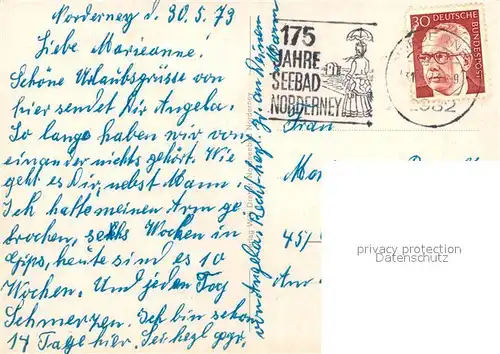 Norderney d. 30.5.73
Liebe Marieanne.
Schöne Urlaubsgrüsse von
hier sendet Dir Angela.
So lange haben wir von
einander nichts gehört. Wie
geht es Dir, nebst Mann.
Ich hatte meinen Arm ge
brochen, sechs Wochen in
Gips, heute sind es 10
Wochen. Und jeden Tag
Schmerzen. Ich bin schon
14 Tage hier. Sei hrzl. gegr.
von Angela. Recht hrzl. Gr. an Deinen Mann
175
JAHRE
SEEBAD
NORDERNEY
30 DEUTSCHE
BUNDESPOST
2982
Frau
45/
privacy protection
Datenschutz